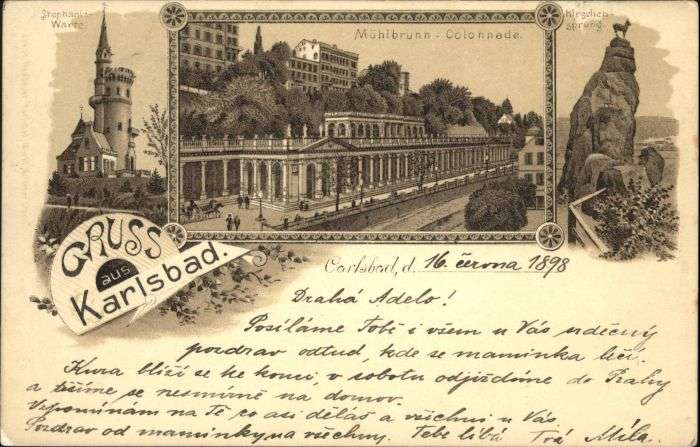 Stephanie-
Warte.
Mühlbrunn - Colonnade.
Hirschen-
sprung
GRUSS
aus
Karlsbad.
Carlsbad, d. 16. června 1898
Drahá Adelo!
Posíláme Tobě i všem u Vás srdečný
pozdrav odtud, kde se maminka léčí.
Kura blíží se ke konci, v sobotu odjíždíme do Prahy
a těšíme se nesmírně na domov.
Vzpomínám na Tě co asi děláš a všichni u Vás
Pozdrav od maminky na všechny. Tebe líbá Tvá Míla.